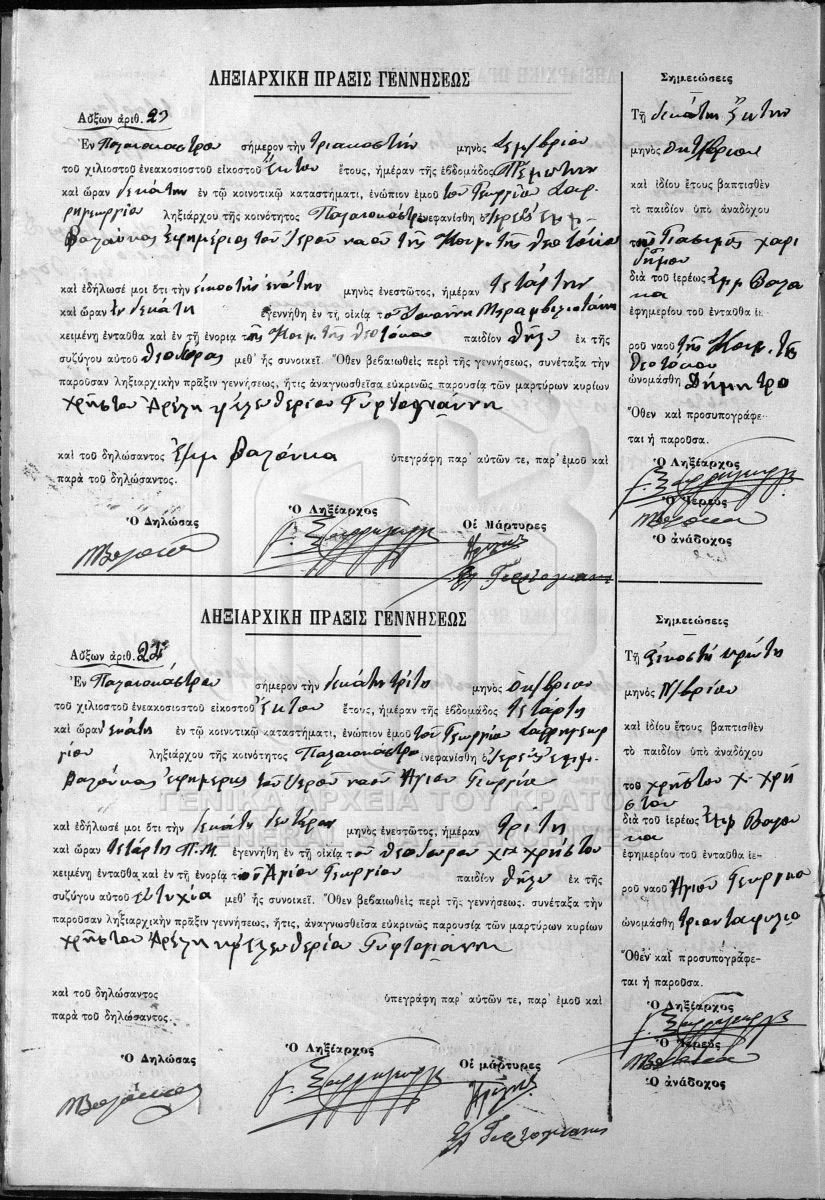 ΛΗΞΙΑΡΧΙΚΗ ΠΡΑΞΙΣ ΓΕΝΝΗΣΕΩΣ
Αὔξων ἀριθ. 23
Ἐν Παλαιοκάστρου σήμερον τὴν τριακοστὴν μηνὸς Σεμ/βρίου
τοῦ χιλιοστοῦ ἐνεακοσιοστοῦ εἰκοστοῦ Ἕκτου ἔτους, ἡμέραν τῆς ἑβδομάδος Πέμπτην
καὶ ὥραν δεκάτην ἐν τῷ κοινοτικῷ καταστήματι, ἐνώπιον ἐμοῦ τοῦ Γεωργίου Σαρ-
ρηγεωργίου ληξιάρχου τῆς κοινότητος Παλαιοκάστρου ἐνεφανίσθη ὁ Ἱερεὺς Ἐμμ-
Βαλούκας ἐφημέριος τοῦ Ἱεροῦ ναοῦ τῆς Κοιμ. τῆς Θεοτόκου
καὶ ἐδήλωσέ μοι ὅτι τὴν εἰκοστὴν ἐνάτην μηνὸς ἐνεστῶτος, ἡμέραν τετάρτην
καὶ ὥραν δεκάτη ἐγεννήθη ἐν τῇ οἰκίᾳ τοῦ Ἰωάννη
κειμένῃ ἐνταῦθα καὶ ἐν τῇ ἐνορίᾳ τῆς Κοιμ. τῆς Θεοτόκου παιδίον θῆλυ ἐκ τῆς
συζύγου αὐτοῦ Θεοδώρας μεθ' ἧς συνοικεῖ. Ὅθεν βεβαιωθεὶς περὶ τῆς γεννήσεως, συνέταξα τὴν
παροῦσαν ληξιαρχικὴν πρᾶξιν γεννήσεως, ἥτις ἀναγνωσθεῖσα εὐκρινῶς παρουσίᾳ τῶν μαρτύρων κυρίων
Χρήστου Ἀρέλη κ Ἐλευθερίου Γυφτογιάννη
καὶ τοῦ δηλώσαντος Ἐμμ Βαλούκα ὑπεγράφη παρ' αὐτῶν τε, παρ' ἐμοῦ καὶ
παρὰ τοῦ δηλώσαντος.
Ὁ Δηλώσας Ὁ Ληξίαρχος Οἱ Μάρτυρες
Σημειώσεις
Τῇ δεκάτην ἕκτην
μηνὸς Οκτωβρίου
καὶ ἰδίου ἔτους βαπτισθὲν
τὸ παιδίον ὑπὸ ἀναδόχου
Χαρι
δήμου
διὰ τοῦ ἱερέως Ἐμμ Βαλο
κα
ἐφημερίου τοῦ ἐνταῦθα ἱε-
ροῦ ναοῦ τῆς Κοιμ. τῆς
Θεοτόκου
ὠνομάσθη Δήμητρα
Ὅθεν καὶ προσυπογράφε-
ται ἡ παροῦσα.
Ὁ Ληξίαρχος
Ὁ Ἱερεὺς
Ὁ ἀνάδοχος
ΛΗΞΙΑΡΧΙΚΗ ΠΡΑΞΙΣ ΓΕΝΝΗΣΕΩΣ
Αὔξων ἀριθ. 24
Ἐν Παλαιοκάστρου σήμερον τὴν δεκάτην τρίτη μηνὸς Οκ/βριου
τοῦ χιλιοστοῦ ἐνεακοσιοστοῦ εἰκοστοῦ Ἕκτου ἔτους, ἡμέραν τῆς ἑβδομάδος τετάρτη
καὶ ὥραν ἐνάτη ἐν τῷ κοινοτικῷ καταστήματι, ἐνώπιον ἐμοῦ τοῦ Γεωργίου Σαρρηγεωρ
γίου ληξιάρχου τῆς κοινότητος Παλαιοκάστρου ἐνεφανίσθη ὁ Ἱερεὺς Ἐμμ.
Βαλούκας ἐφημέριος τοῦ Ἱεροῦ ναοῦ Ἁγίου Γεωργίου
καὶ ἐδήλωσέ μοι ὅτι τὴν δεκάτη δευτέρας μηνὸς ἐνεστῶτος, ἡμέραν τρίτη
καὶ ὥραν τετάρτη Π.Μ. ἐγεννήθη ἐν τῇ οἰκίᾳ τοῦ Θεοδώρου Χ" Χρήστου
κειμένῃ ἐνταῦθα καὶ ἐν τῇ ἐνορίᾳ τοῦ Ἁγίου Γεωργίου παιδίον θῆλυ ἐκ τῆς
συζύγου αὐτοῦ Εὐτυχία μεθ' ἧς συνοικεῖ. Ὅθεν βεβαιωθεὶς περὶ τῆς γεννήσεως. συνέταξα τὴν
παροῦσαν ληξιαρχικὴν πρᾶξιν γεννήσεως, ἥτις, ἀναγνωσθεῖσα εὐκρινῶς παρουσίᾳ τῶν μαρτύρων κυρίων
Χρήστου Ἀρέλη κ Ἐλευθερίου Γυφτογιάννη
καὶ τοῦ δηλώσαντος ὑπεγράφη παρ' αὐτῶν τε, παρ' ἐμοῦ καὶ
παρὰ τοῦ δηλώσαντος.
Ὁ Δηλώσας Ὁ Ληξίαρχος Οἱ μάρτυρες
Σημειώσεις
Τῇ εἰκοστὴ πρώτη
μηνὸς Ν/βρίου
καὶ ἰδίου ἔτους βαπτισθὲν
τὸ παιδίον ὑπὸ ἀναδόχου
τοῦ Χρήστου Χ. Χρή
στου
διὰ τοῦ ἱερέως Ἐμμ Βαλου
κα
ἐφημερίου τοῦ ἐνταῦθα ἱε-
ροῦ ναοῦ Ἁγίου Γεωργίου
ὠνομάσθη Τριανταφυλιο
Ὅθεν καὶ προσυπογράφε-
ται ἡ παροῦσα.
Ὁ Ληξίαρχος
Ὁ Ἱερεὺς
Ὁ ἀνάδοχος
ΓΕΝΙΚΑ ΑΡΧΕΙΑ ΤΟΥ ΚΡΑΤΟΥΣ